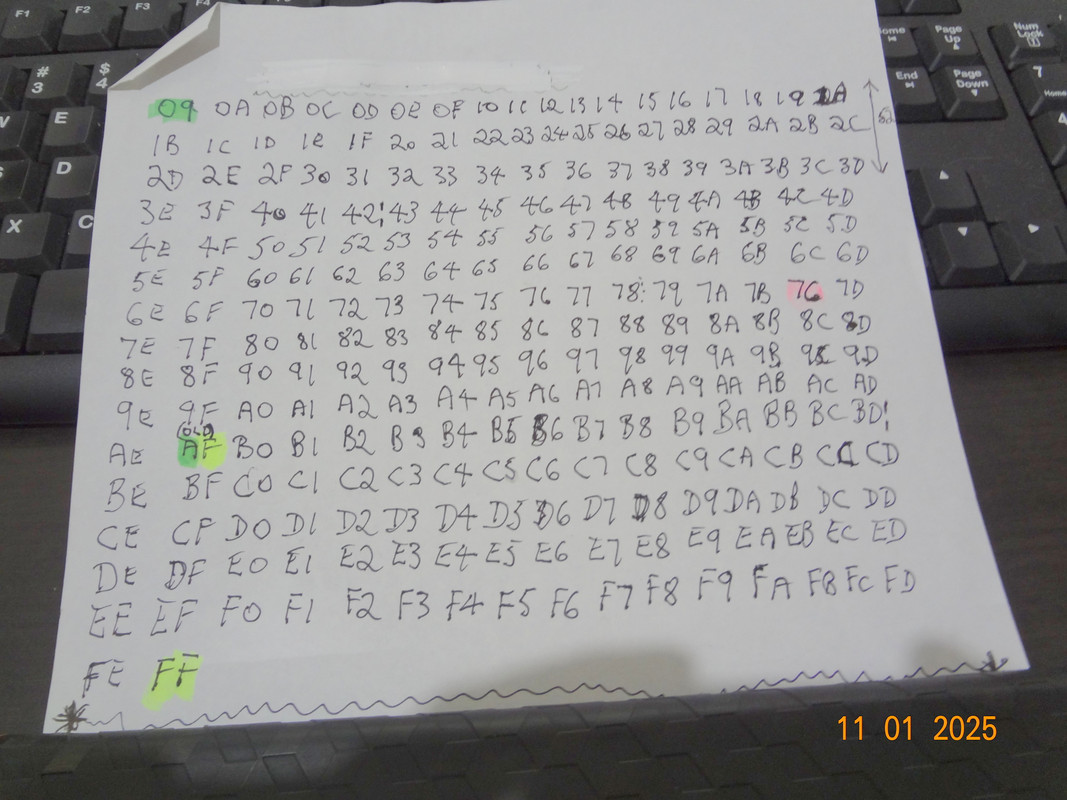 F1 F2 F3 F4
# 3 $ 4
E
S D
X C
Home Page Up Num Lock
End Page Down 7 Home
4
09 0A 0B 0C 0D 0E 0F 10 11 12 13 14 15 16 17 18 19 1A
1B 1C 1D 1E 1F 20 21 22 23 24 25 26 27 28 29 2A 2B 2C
2D 2E 2F 30 31 32 33 34 35 36 37 38 39 3A 3B 3C 3D
3E 3F 40 41 42 43 44 45 46 47 48 49 4A 4B 4C 4D
4E 4F 50 51 52 53 54 55 56 57 58 59 5A 5B 5C 5D
5E 5F 60 61 62 63 64 65 66 67 68 69 6A 6B 6C 6D
6E 6F 70 71 72 73 74 75 76 77 78 79 7A 7B 7C 7D
7E 7F 80 81 82 83 84 85 86 87 88 89 8A 8B 8C 8D
8E 8F 90 91 92 93 94 95 96 97 98 99 9A 9B 9C 9D
9E 9F A0 A1 A2 A3 A4 A5 A6 A7 A8 A9 AA AB AC AD
(OLD
AE AF B0 B1 B2 B3 B4 B5 B6 B7 B8 B9 BA BB BC BD
BE BF C0 C1 C2 C3 C4 C5 C6 C7 C8 C9 CA CB CC CD
CE CF D0 D1 D2 D3 D4 D5 D6 D7 D8 D9 DA DB DC DD
DE DF E0 E1 E2 E3 E4 E5 E6 E7 E8 E9 EA EB EC ED
EE EF F0 F1 F2 F3 F4 F5 F6 F7 F8 F9 FA FB FC FD
FE FF
11 01 2025